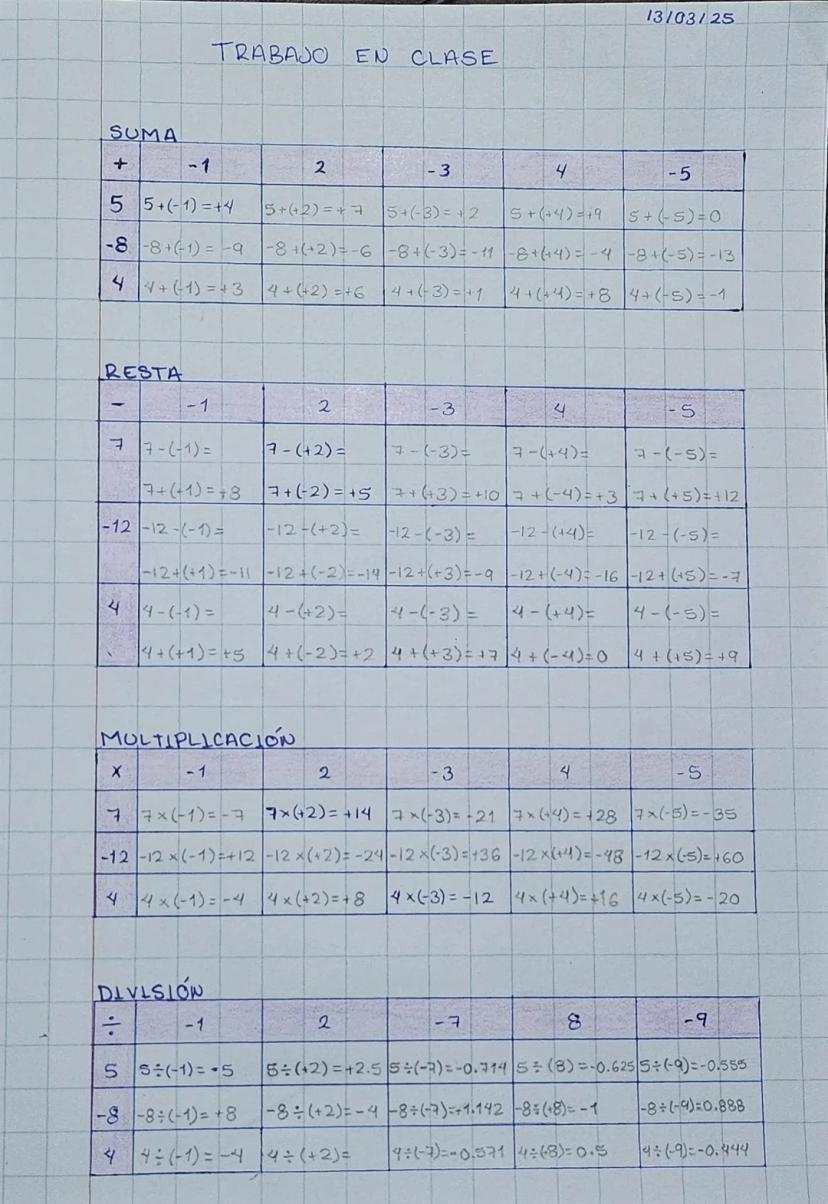 13/03/25
TRABAJO EN CLASE
SUMA
+ -1 2 -3 4 -5
5 5+(-1)=+4 5+(+2)=+7 5+(-3)=+2 5+(+4)=+9 5+(-5)=0
-8 -8+(-1)=-9 -8+(+2)=-6 -8+(-3)=-11 -8+(+4)=-4 -8+(-5)=-13
4 4+(-1)=+3 4+(+2)=+6 4+(-3)=+1 4+(+4)=+8 4+(-5)=-1
RESTA
- -1 2 -3 4 -5
7 7-(-1)= 7-(+2)= 7-(-3)= 7-(+4)= 7-(-5)=
7+(+1)=+8 7+(-2)=+5 7+(+3)=+10 7+(-4)=+3 7+(+5)=+12
-12 -12-(-1)= -12-(+2)= -12-(-3)= -12-(+4)= -12-(-5)=
-12+(+1)=-11 -12+(-2)=-14 -12+(+3)=-9 -12+(-4)=-16 -12+(+5)=-7
4 4-(-1)= 4-(+2)= 4-(-3)= 4-(+4)= 4-(-5)=
4+(+1)=+5 4+(-2)=+2 4+(+3)=+7 4+(-4)=0 4+(+5)=+9
MULTIPLICACIÓN
x -1 2 -3 4 -5
7 7x(-1)=-7 7x(+2)=+14 7x(-3)=-21 7x(+4)=+28 7x(-5)=-35
-12 -12x(-1)=+12 -12x(+2)=-24 -12x(-3)=+36 -12x(+4)=-48 -12x(-5)=+60
4 4x(-1)=-4 4x(+2)=+8 4x(-3)=-12 4x(+4)=+16 4x(-5)=-20
DIVISIÓN
÷ -1 2 -7 8 -9
5 5÷(-1)=-5 5÷(+2)=+2.5 5÷(-7)=-0.714 5÷(8)=-0.625 5÷(-9)=-0.555
-8 -8÷(-1)=+8 -8÷(+2)=-4 -8÷(-7)=+1.142 -8÷(+8)=-1 -8÷(-9)=0.888
4 4÷(-1)=-4 4÷(+2)= 4÷(-7)=-0.571 4÷(8)=0.5 4÷(-9)=-0.444